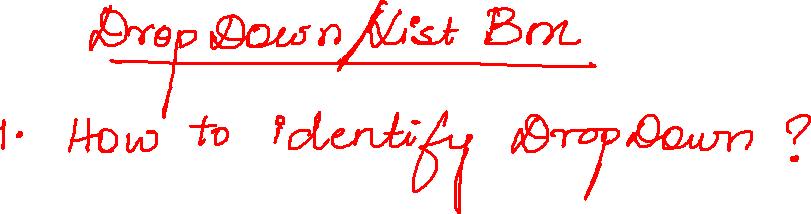 DropDown/List Box
1. How to identify DropDown ?